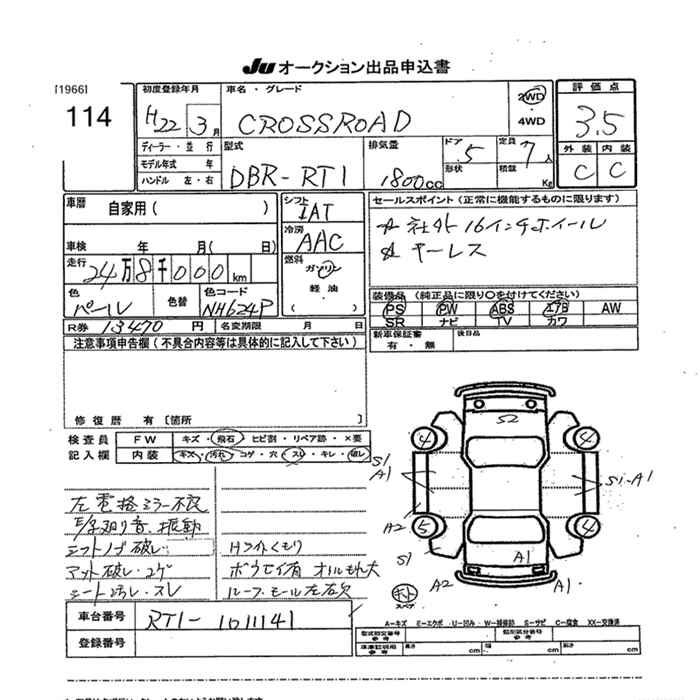 JU オークション出品申込書
[1966]
114
初度登録年月
H22 3月
車名・グレード
CROSSROAD
2WD
・
4WD
評価点
3.5
外装 内装
C C
ディーラー・並行
モデル年式 年
ハンドル 左・右
型式
DBR-RT1
排気量
1800cc
ドア 5
形状
定員 7人
積載 Kg
車歴
自家用( )
車検 年 月( 日)
走行
24万8千000km
色
パール
色替
色コード
NH624P
シフト
IAT
冷房
AAC
燃料
ガソリン
軽油
( )
セールスポイント(正常に機能するものに限ります)
☆ 社外16インチホイール
☆ キーレス
装備品(純正品に限り○を付けてください)
PS PW ABS エアB AW
SR ナビ TV カワ
新車保証書
有・無
後日品
R券 13470円 名変期限 月 日
注意事項申告欄(不具合内容等は具体的に記入して下さい)
修復歴 有〔箇所 〕
検査員 FW キズ・飛石・ヒビ割・リペア跡・×要
記入欄 内装 キズ・汚れ・コゲ・穴・スレ・キレ・破レ
左電格ミラー不良
E/g廻り音、振動
シフトノブ破レ
マット破レ・コゲ
シート汚レ・スレ
Hライトくもり
ボウセイ有 オイルもれ大
ルーフモール左右欠
S2
4 4
S1
A1
S1-A1
A2 5 4
S1
A1
A2 A1
キット
スペア
車台番号 RT1-1011141
登録番号
A-キズ E-エクボ U-凹み W-補修跡 S-サビ C-腐食 XX-交換済
型式指定番号
参考
類別区分番号
参考
車庫証明用
参考
長さ cm 幅 cm 高さ cm